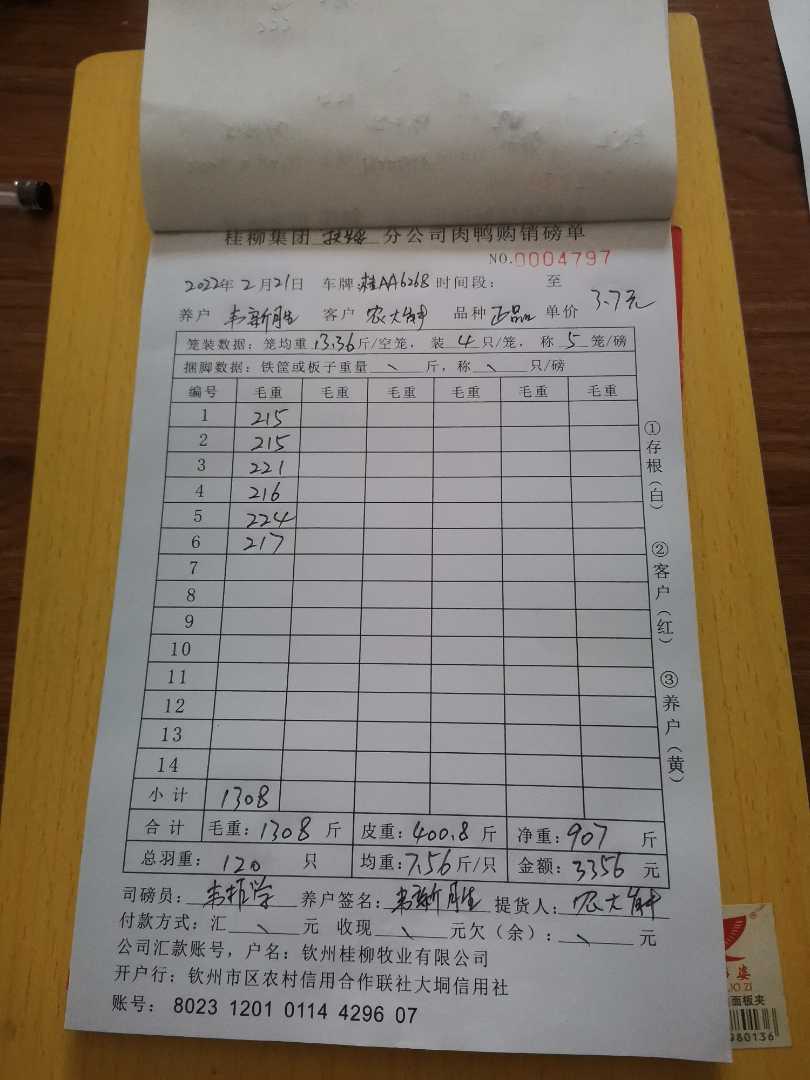 桂柳集团 扶绥 分公司肉鸭购销磅单
NO.0004797
2022年2月21日 车牌:桂AA6268 时间段: 至
养户 韦新胜 客户 农大 品种 正品 单价 3.7元
笼装数据:笼均重 13.36 斤/空笼, 装 4 只/笼, 称 5 笼/磅
捆脚数据:铁筐或板子重量 \ 斤,称 \ 只/磅
编号 毛重 毛重 毛重 毛重 毛重 毛重
1 215
2 215
3 221
4 216
5 224
6 217
7
8
9
10
11
12
13
14
小计 1308
合计 毛重:1308 斤 皮重:400.8 斤 净重:907 斤
总羽重: 120 只 均重:7.56 斤/只 金额:3356 元
司磅员: 养户签名:韦新胜 提货人:农大
付款方式:汇 \ 元 收现 \ 元欠(余): \ 元
公司汇款账号,户名:钦州桂柳牧业有限公司
开户行:钦州市区农村信用合作联社大垌信用社
账号: 8023 1201 0114 4296 07
①存根(白) ②客户(红) ③养户(黄)
姿
面板夹
980136